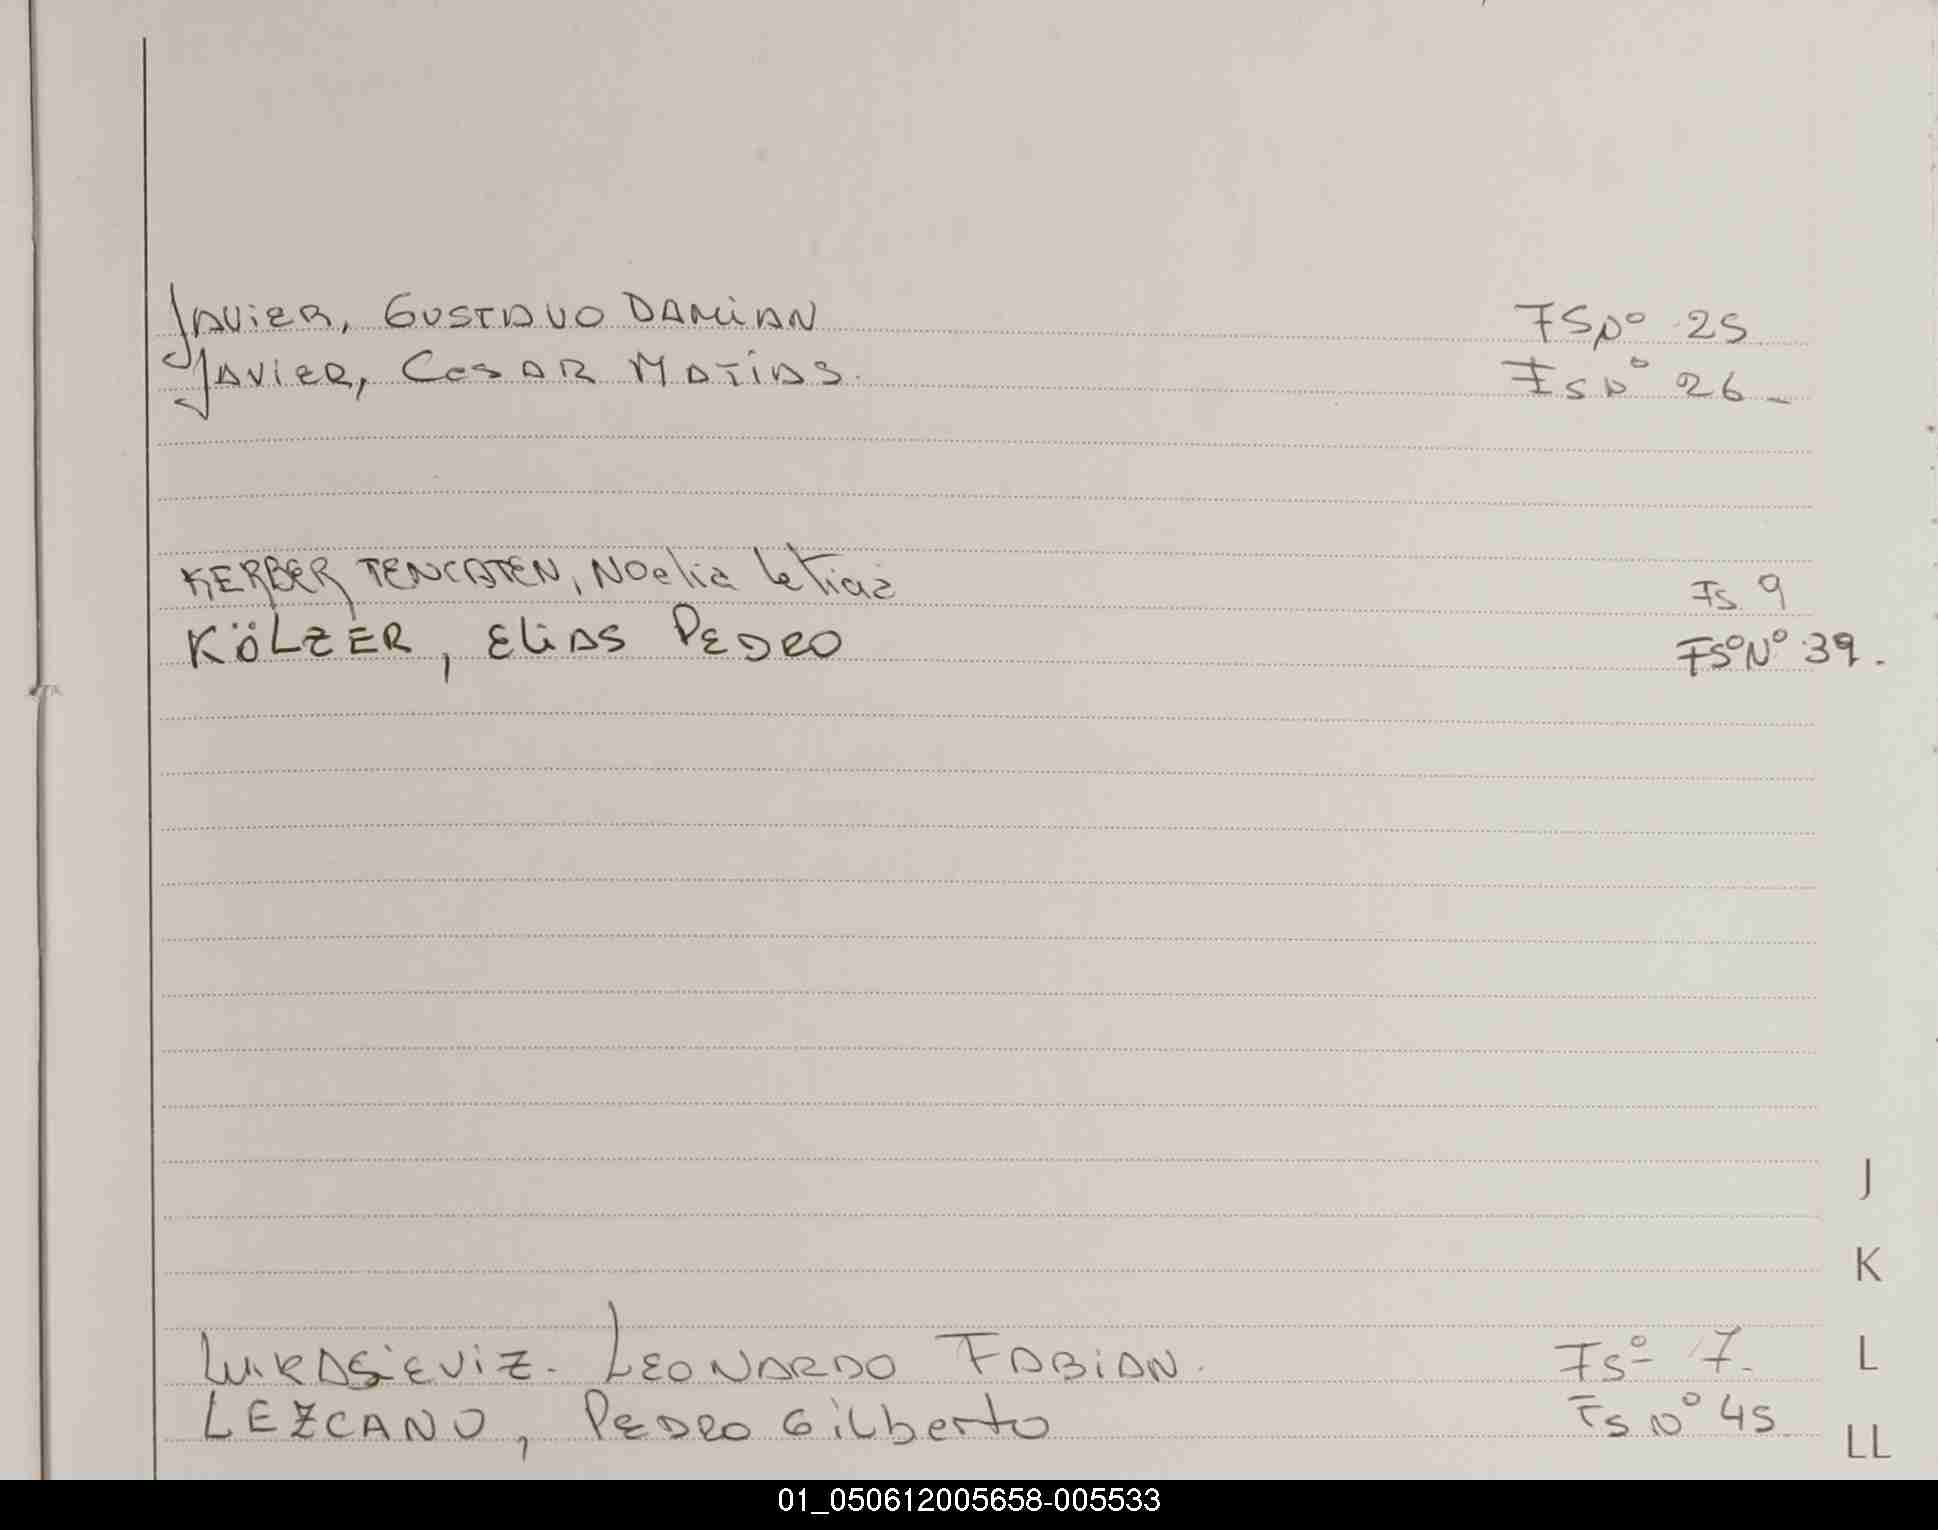 JAVIER, GUSTAVO DAMIAN FS Nº 25
JAVIER, CESAR MATIAS. FS Nº 26_
KERBER TENCATEN, Noelia Fs 9
KÖLZER, ELIAS PEDRO FSº Nº 39.
J
K
LUKASIEVIZ. LEONARDO FABIAN. Fsº 7.
L
LEZCANO, PEDRO Gilberto Fs Nº 45
LL
01_050612005658-005533